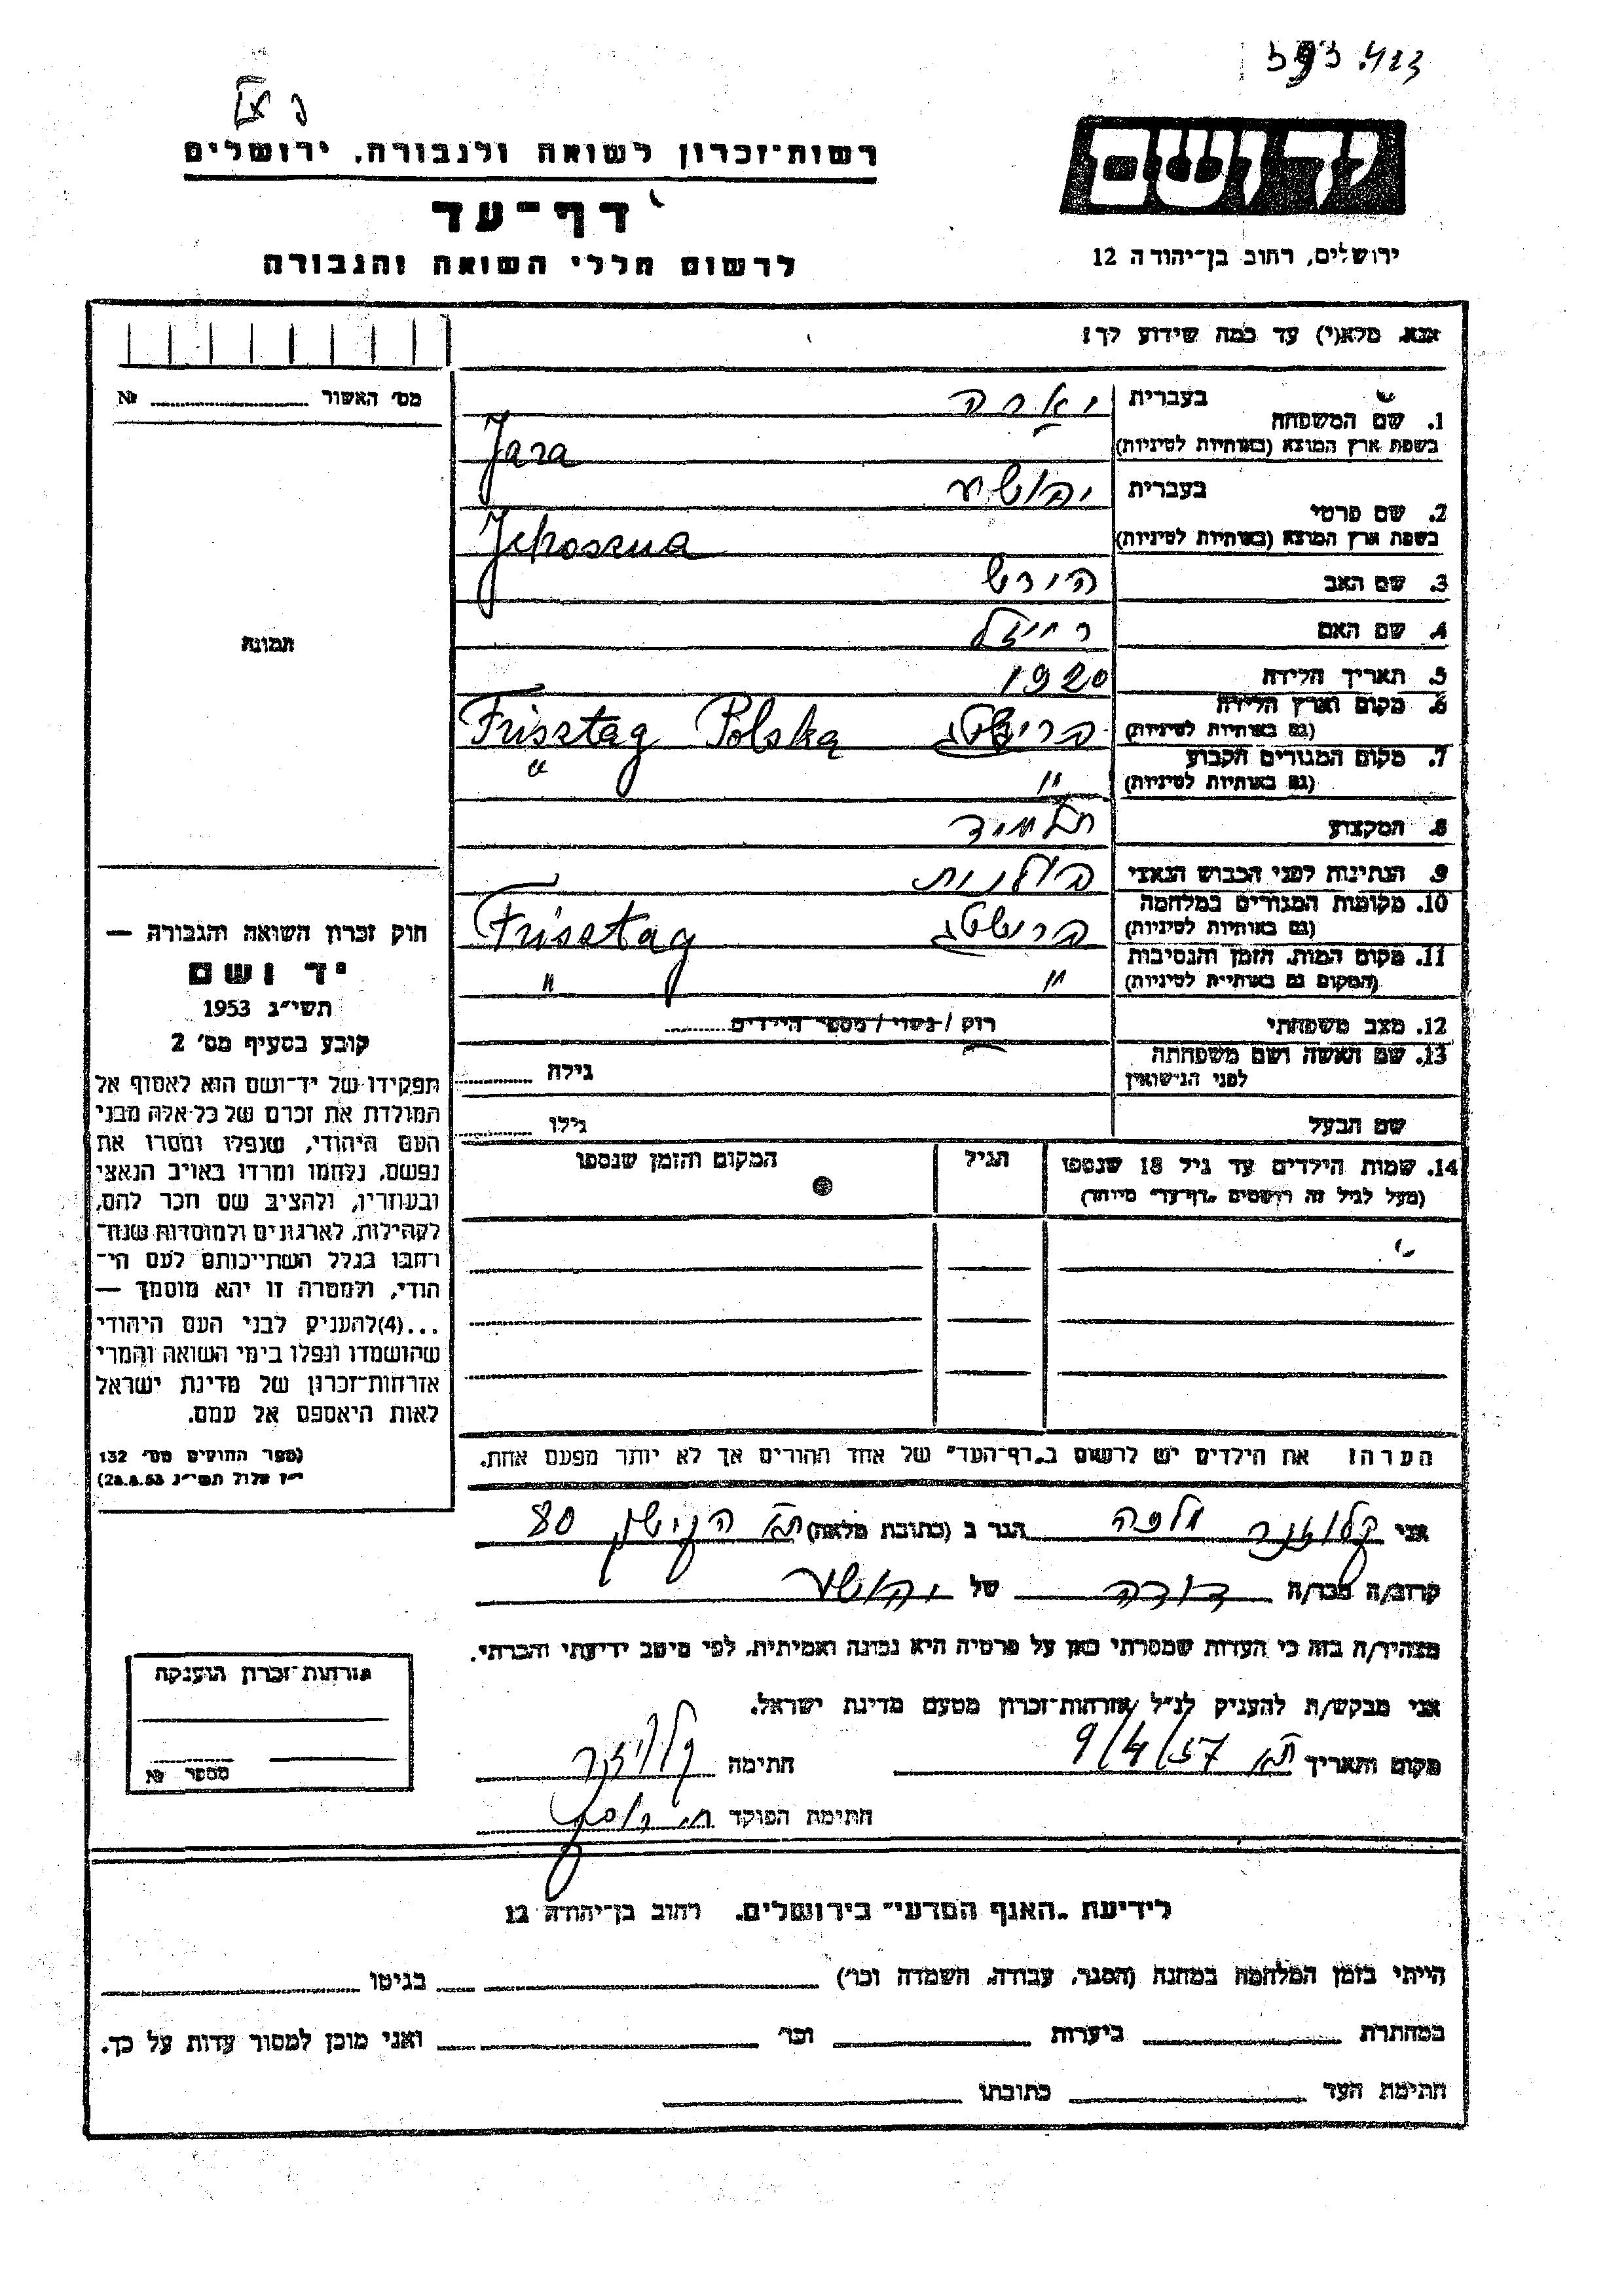 רשות־זכרון לשואה ולגבורה, ירושלים
דף־עד
לרשום חללי השואה והגבורה
יד ושם
ירושלים, רחוב בן־יהודה 12
אנא, מלא(י) עד כמה שידוע לך!
מס׳ האשור № 
תמונה
1. שם המשפחה בעברית יארה
בשפת ארץ המוצא (באותיות לטיניות) Jara
2. שם פרטי בעברית יהושע
בשפת ארץ המוצא (באותיות לטיניות) Jehoszua
3. שם האב הירש
4. שם האם רייזל
5. תאריך הלידה 1920
6. מקום וארץ הלידה (גם באותיות לטיניות) פרישטג Frisztag Polska
7. מקום המגורים הקבוע (גם באותיות לטיניות) " "
8. המקצוע תלמיד
9. הנתינות לפני הכבוש הנאצי פולנית
10. מקומות המגורים במלחמה (גם באותיות לטיניות) פרישטג Frisztag
11. מקום המות, הזמן והנסיבות (המקום גם באותיות לטיניות) " "
12. מצב משפחתי רוק / נשוי / מספר הילדים
13. שם האשה ושם משפחתה לפני הנישואין גילה
שם הבעל גילו
14. שמות הילדים עד גיל 18 שנספו הגיל המקום והזמן שנספו
(מעל לגיל זה רושמים „דף־עד" מיוחד)
חוק זכרון השואה והגבורה —
יד ושם
תשי״ג 1953
קובע בסעיף מס׳ 2
תפקידו של יד־ושם הוא לאסוף אל
המולדת את זכרם של כל־אלה מבני
העם היהודי, שנפלו ומסרו את
נפשם, נלחמו ומרדו באויב הנאצי
ובעוזריו, ולהציב שם וזכר להם,
לקהילות, לארגונים ולמוסדות שנח־
רחבו בגלל השתייכותם לעם הי־
הודי, ולמטרה זו יהא מוסמך —
...(4)להעניק לבני העם היהודי
שהושמדו ונפלו בימי השואה והמרי
אזרחות־זכרון של מדינת ישראל
לאות היאספם אל עמם.
(ספר החוקים מס׳ 132
י״ז אלול תשי״ג 28.8.53)
הערה: את הילדים יש לרשום ב„דף־העד" של אחד ההורים אך לא יותר מפעם אחת.
אני קלוזנר הגר ב (כתובת מלאה) ת״א 80
קרוב/ה מכר/ה דודה של יהושע
מצהיר/ה בזה כי העדות שמסרתי כאן על פרטיה היא נכונה ואמיתית, לפי מיטב ידיעתי והכרתי.
אני מבקש/ת להעניק לנ״ל אזרחות־זכרון מטעם מדינת ישראל.
מקום ותאריך ת״א 9/4/57 חתימה
חתימת הפוקד
אזרחות־זכרון הוענקה
מספר №
לידיעת „האגף המדעי" בירושלים, רחוב בן־יהודה 12
הייתי בזמן המלחמה במחנה (הסגר, עבודה, השמדה וכו׳) בגיטו
במחתרת ביערות וכו׳ ואני מוכן למסור עדות על כך.
חתימת העד כתובתו